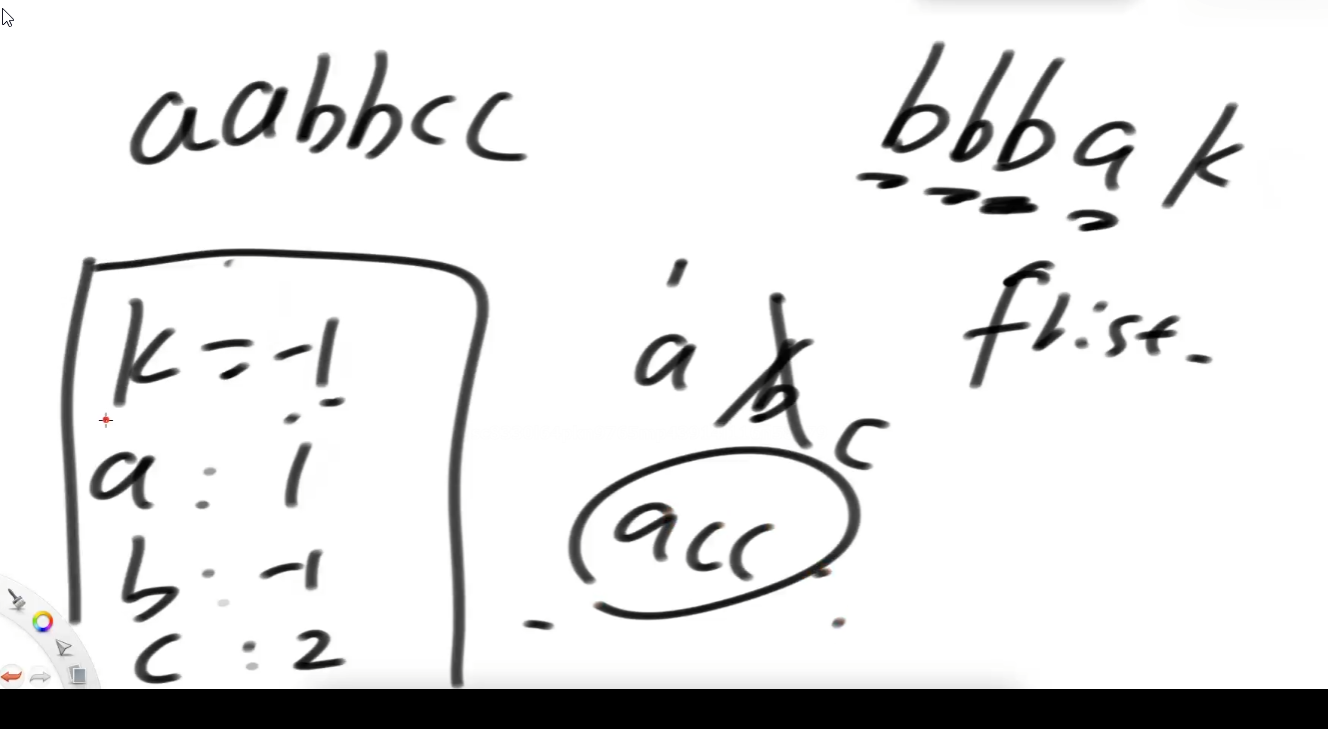 aabbcc
bbbak
k=-1
a : 1
b : -1
c : 2
a b c
acc
flist